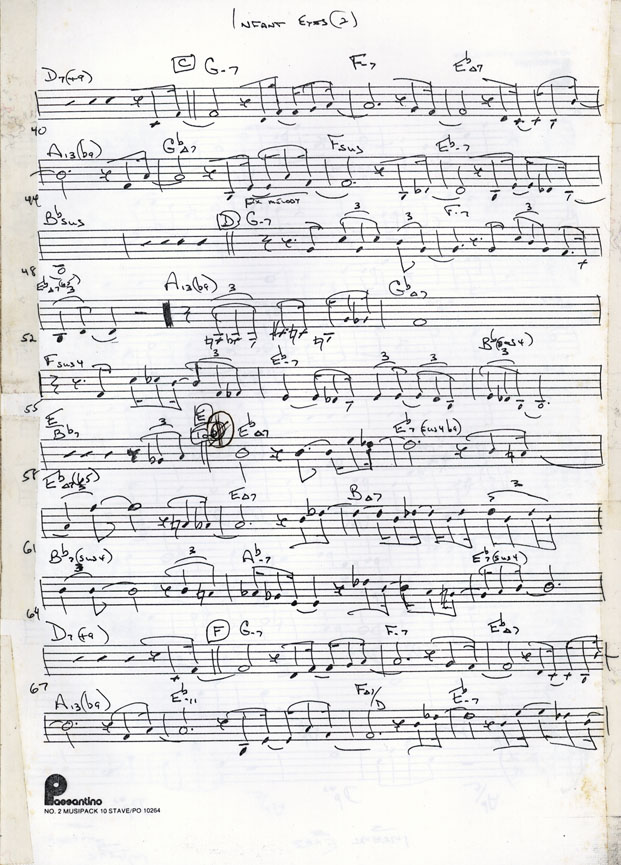 INFANT EYES (2)
D7(+9) C G-7 F-7 E♭Δ7
40
A13(b9) G♭Δ7 Fsus E♭-7
FIX MELODY
44
B♭sus D G-7 F-7
3 3 3
48
E♭Δ7(♭5) A13(b9) G♭Δ7
3 3
52
Fsus4 E♭-7 B♭(sus4)
3 3 3 3
55
E
B♭7 E E♭Δ7 E♭7(sus4b9)
3
58
E♭Δ7(♭5) EΔ7 BΔ7
3 3
61
B♭7(sus4) A♭-7 E♭7(sus4)
3 3
64
D7+9 F G-7 F-7 E♭Δ7
67
A13(b9) E♭-11 FΔ7/D E♭-7
Passantino
NO. 2 MUSIPACK 10 STAVE/PO 10264